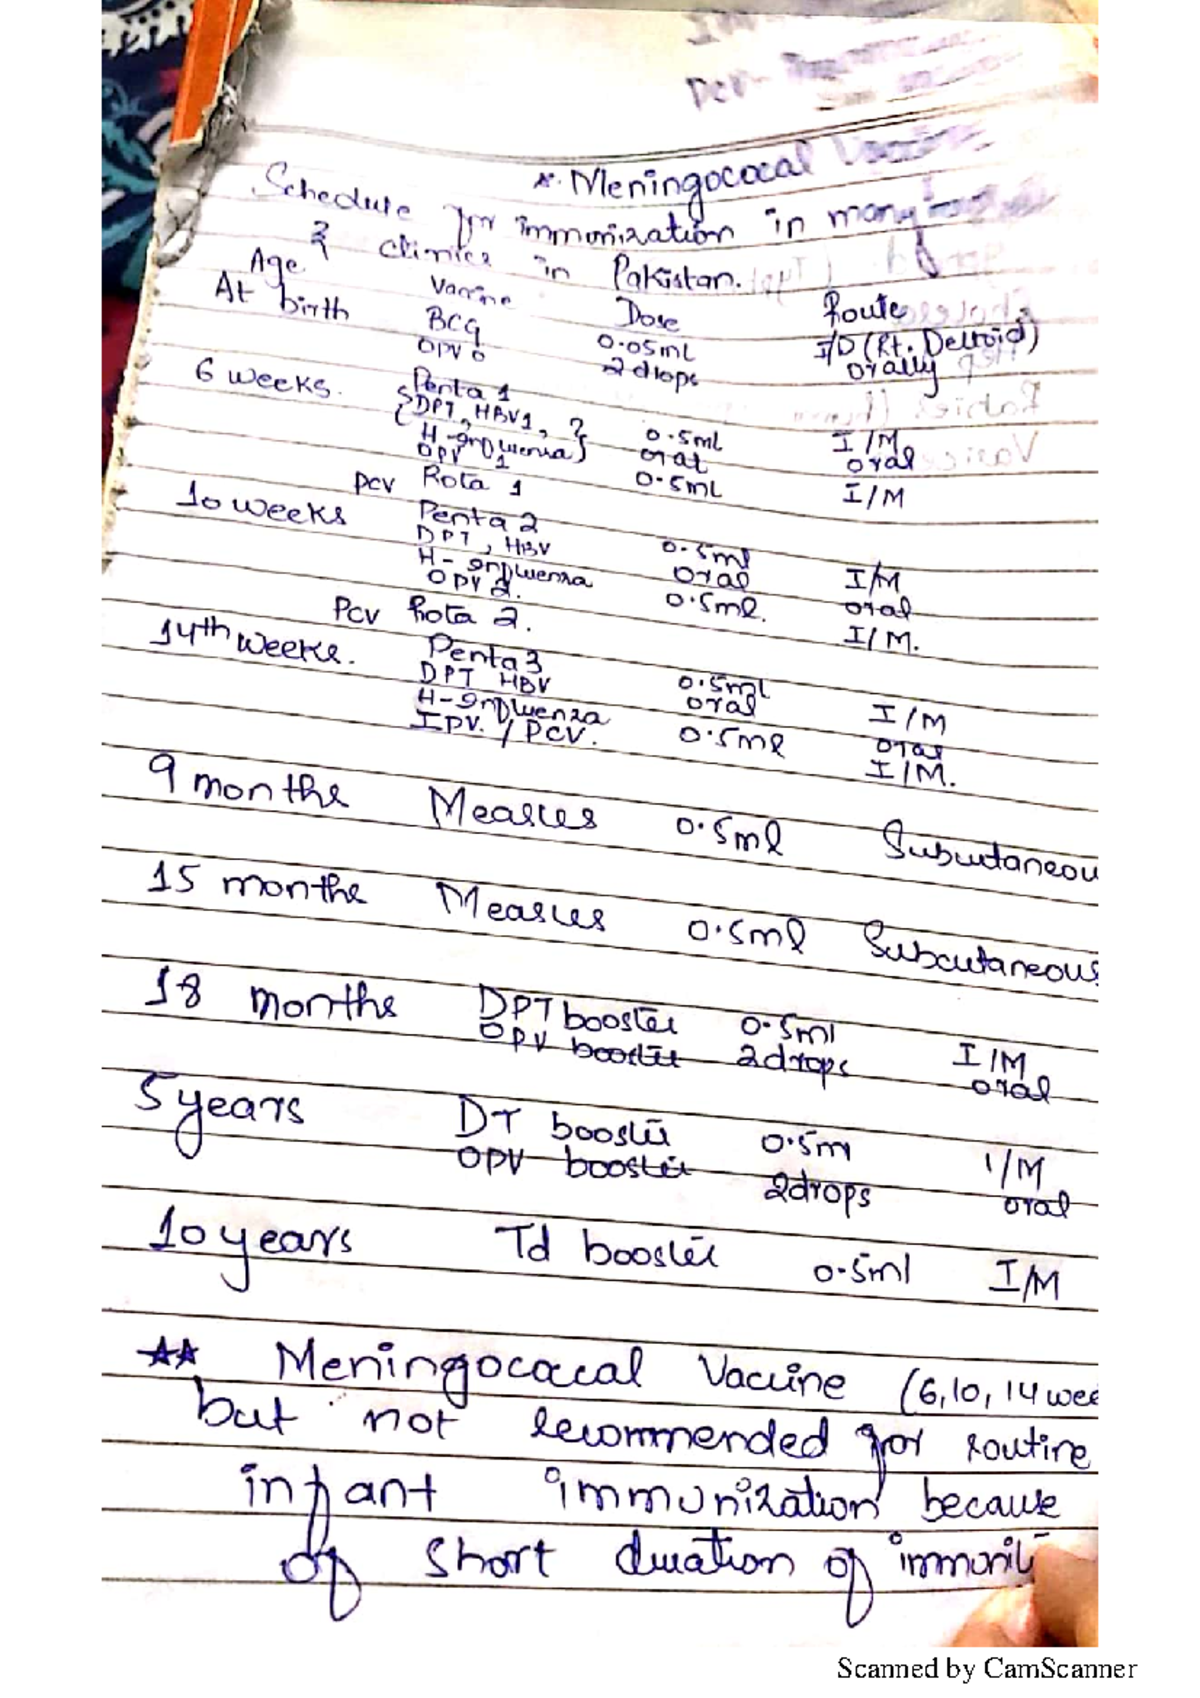 * Meningococal Vaccine
Schedule for immunization in many
& clinics in Pakistan.
Age Vaccine Dose Route
At birth BCG 0.05ml I/D (Rt. Deltoid)
OPV 0 2 drops orally
6 weeks. Penta 1
{DPT, HBV1, } 0.5ml I/M
H-Influenza} oral oral
OPV 1 0.5ml I/M
PCV Rota 1
10 weeks Penta 2
DPT, HBV 0.5ml I/M
H-Influenza oral oral
OPV 2. 0.5ml. I/M.
Pcv Rota 2.
14th weeks. Penta 3
DPT HBV 0.5ml I/M
H-Influenza oral oral
IPV. / PCV. 0.5ml I/M.
9 months Measles 0.5ml Subcutaneou
15 months Measles 0.5ml Subcutaneous
18 months DPT booster 0.5ml I/M
OPV booster 2 drops oral
5 years DT booster 0.5ml I/M
OPV booster 2drops oral
10 years Td booster 0.5ml I/M
** Meningococal Vaccine (6,10, 14 wee
but not recommended for routine
infant immunization because
of short duration of immunit
Scanned by CamScanner